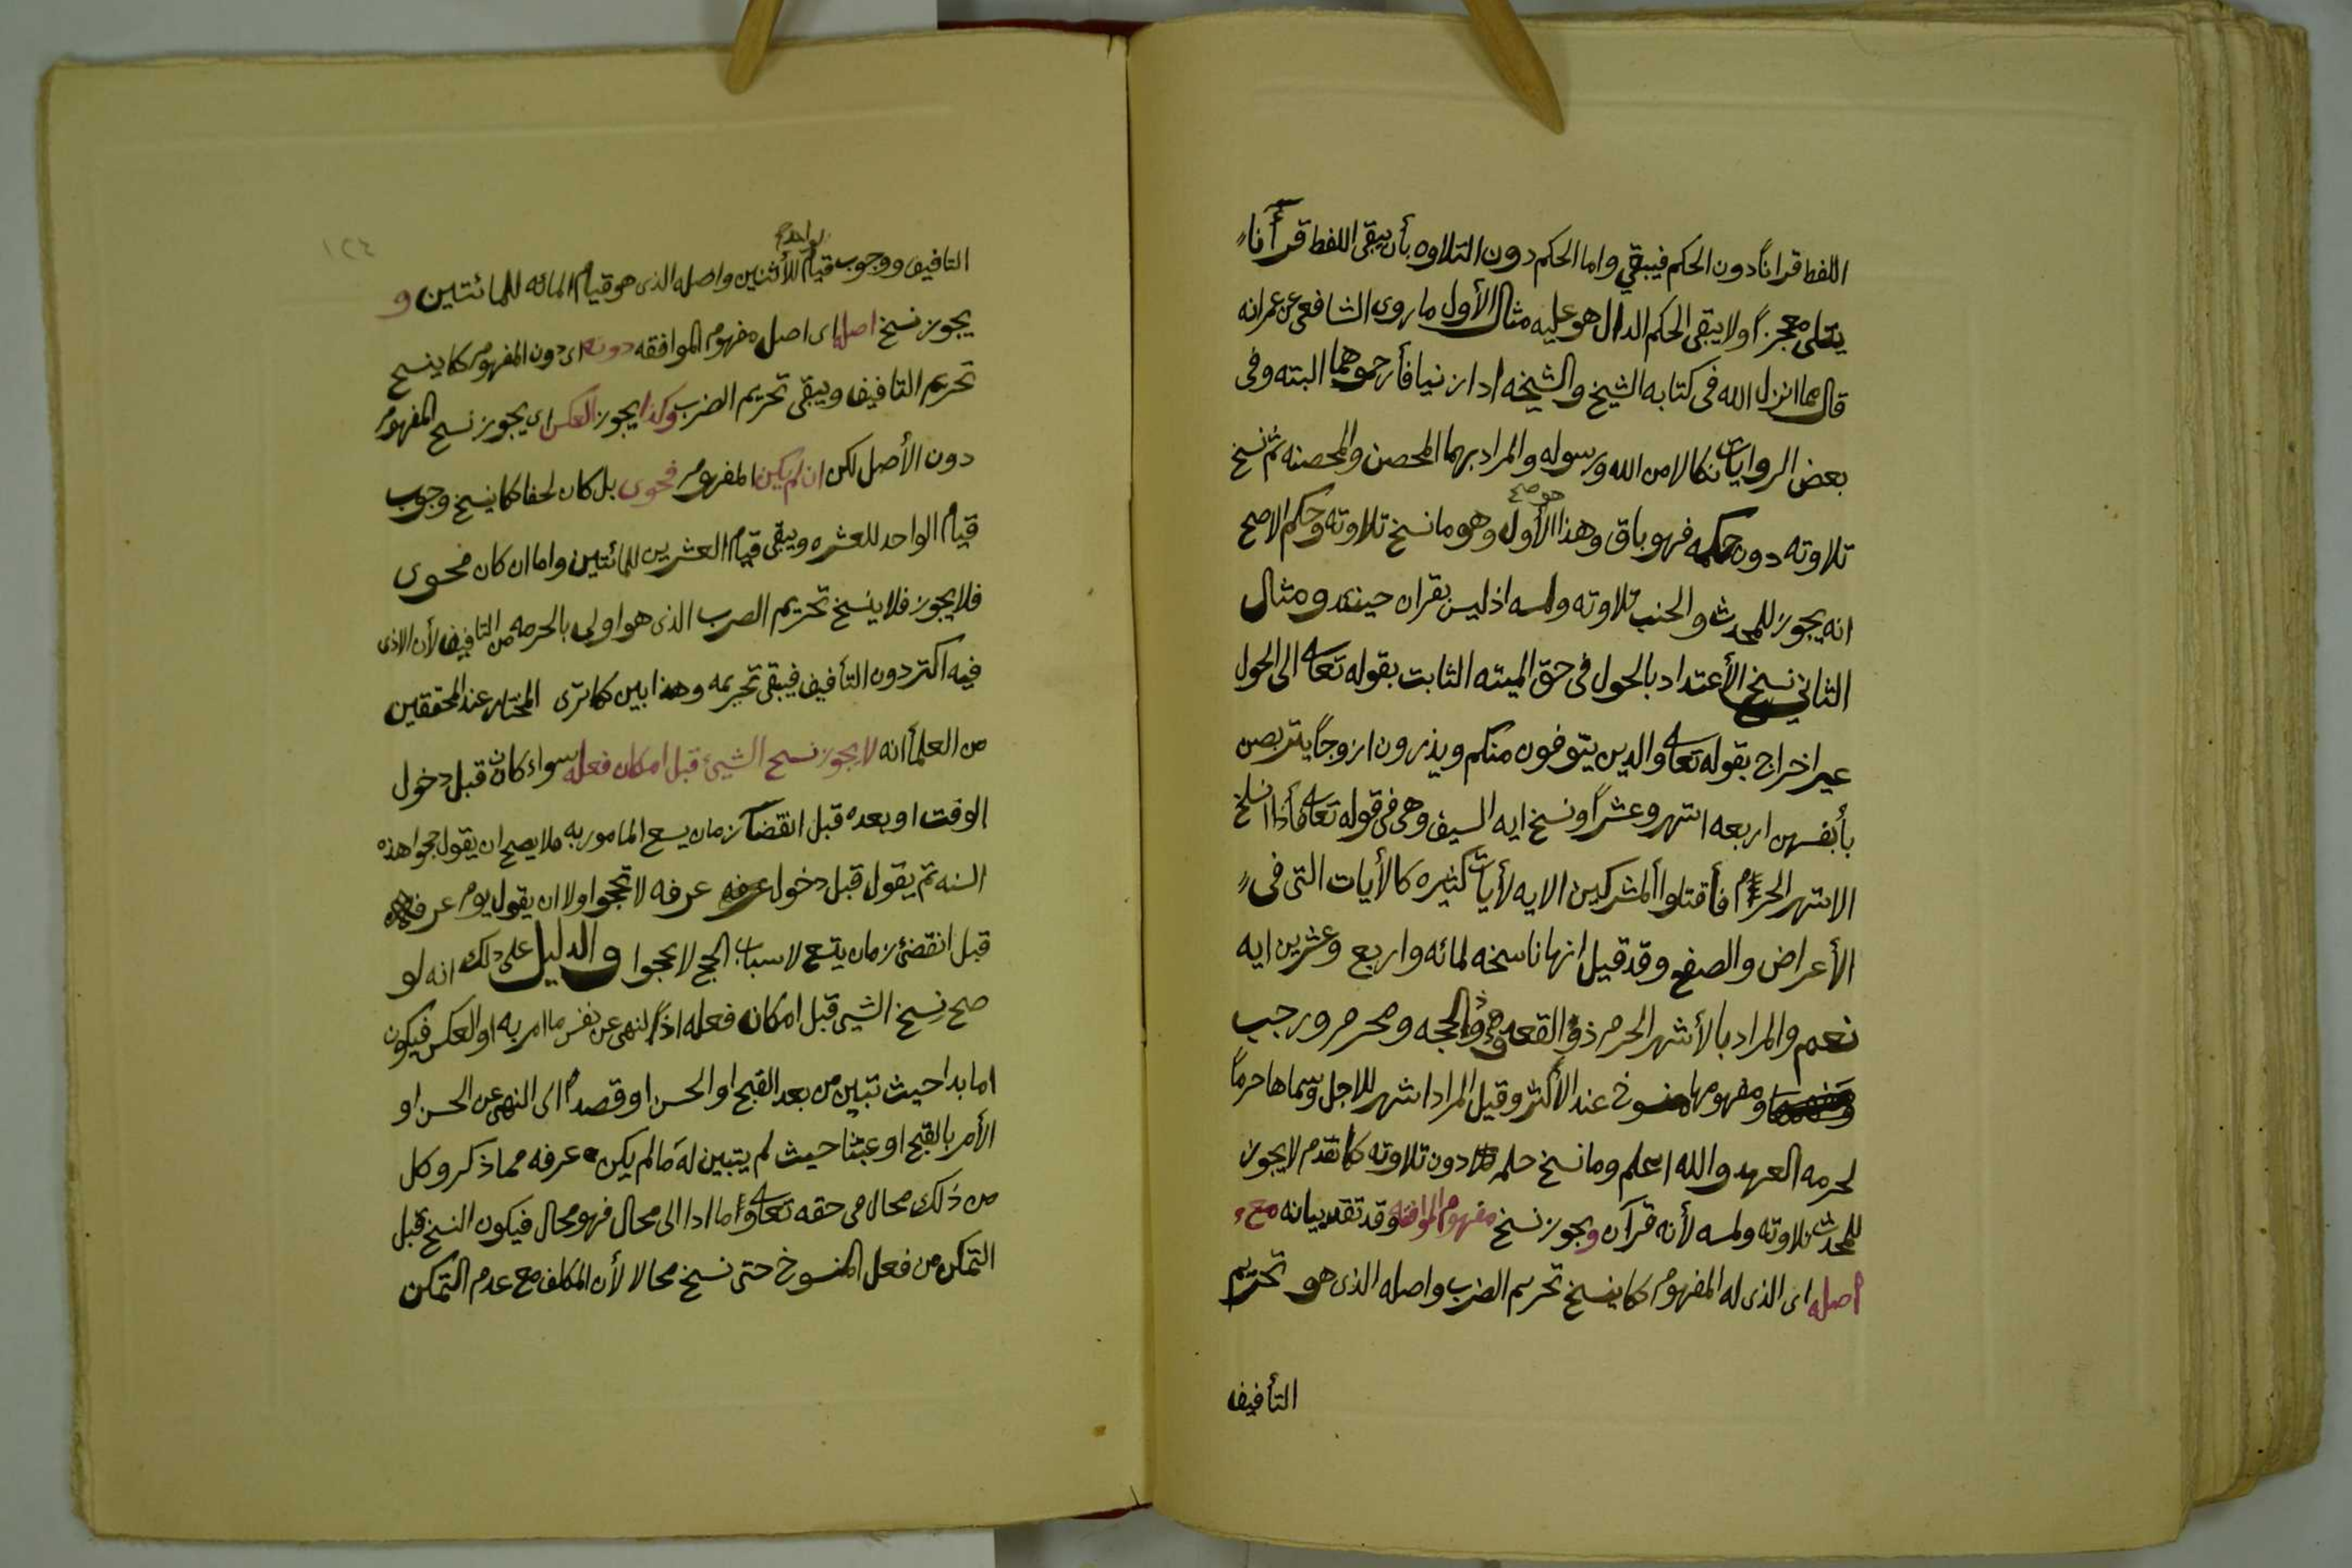 اللفظ قرانًا دون الحكم فيبقي واما الحكم دون التلاوه بأن يبقى اللفظ قرأنًا
يتلى معجزًا ولا يبقى الحكم الدال هو عليه مثال الأول ما روى الشافعى عن عمر انه
قال مما انزل الله فى كتابه الشيخ والشيخه اذا زنيا فأرجموهما البته وفى
بعض الروايات نكالا من الله ورسوله والمراد بهما المحصن والمحصنه ثم نسخ
تلاوته دون حكمه فهو باق وهذا الأول وهو ما نسخ تلاوته وحكم الاصح
هو صح
انه يجوز للمحدث والجنب تلاوته ولمسه اذ ليس بقران حينئذ ومثال
الثاني نسخ الأعتداد بالحول فى حق الميته الثابت بقوله تعالى الى الحول
غير اخراج بقوله تعالى والدين يتوفون منكم ويذرون ازوجًا يتربصن
بأنفسهن اربعه اشهر وعشرًا ونسخ ايه السيف وهى فى قوله تعالى فأذا انسلخ
الاشهر الحرم فأقتلوا ألمشركين الايه لأيات كثيره كالأيات التى فى
الأعراض والصفح وقد قيل انها ناسخه لمائه واربع وعشرين ايه
نعم والمراد بالأشهر الحرم ذو القعده وذو الحجه ومحرم ورجب
ومفهومها منسوخ عند الأكثر وقيل المراد اشهر للاجل وسماها حرمًا
لحرمه العهد والله اعلم وما نسخ حكمه دون تلاوته كما تقدم لا يجوز
للمحدث تلاوته ولمسه لأنه قرآن ويجوز نسخ مفهوم الموافقه وقد تقدم بيانه مع
أصله اى الذى له المفهوم كما ينسخ تحريم الضرب واصله الذى هو تحريم
التأفيف
١٢٤
التافيف ووجوب قيام للأثنين واصله الذى هو قيام المائه للمائتين و
يجوز نسخ اصله اى اصل مفهوم الموافقه دونه اى دون المفهوم كما ينسخ
تحريم التافيف ويبقى تحريم الضرب وكذا يجوز العكس اى يجوز نسخ المفهوم
دون الأصل لكن ان لم يكن المفهوم فحوى بل كان لحنا كما ينسخ وجوب
قيام الواحد للعشره ويبقى قيام العشرين للمائتين واما ان كان فحوى
فلا يجوز فلا ينسخ تحريم الضرب الذى هو اولى بالحرمه من التافيف لأن الاذى
فيه اكثر دون التأفيف فيبقى تحريمه وهذا بين كما ترى المختار عند المحققين
من العلمأ انه لا يجوز نسخ الشيئ قبل امكان فعله سواء كان قبل دخول
الوقت او بعده قبل انقضآ زمان يسع المامور به فلا يصح ان يقول حجوا هذه
السنه ثم يقول قبل دخول عرفه لا تحجوا ولا ان يقول يوم عرفه
قبل انقضئ زمان يتسع لاسباب الحج لا تحجوا والدليل على ذلك انه لو
صح نسخ الشيى قبل امكان فعله اذًا لنهى عن نفس ما امر به او العكس فيكون
اما بدا حيث تبين من بعد القبح او الحسن او قصدًا الى النهى عن الحسن او
الأمر بالقبح او عبثا حيث لم يتبين له مالم يكن عرفه مما ذكر وكل
من ذلك محال فى حقه تعالى وأما ادا الى محال فهو محال فيكون النسخ قبل
التمكن من فعل المنسوخ حتى نسخ محالا لأن المكلف مع عدم التمكن